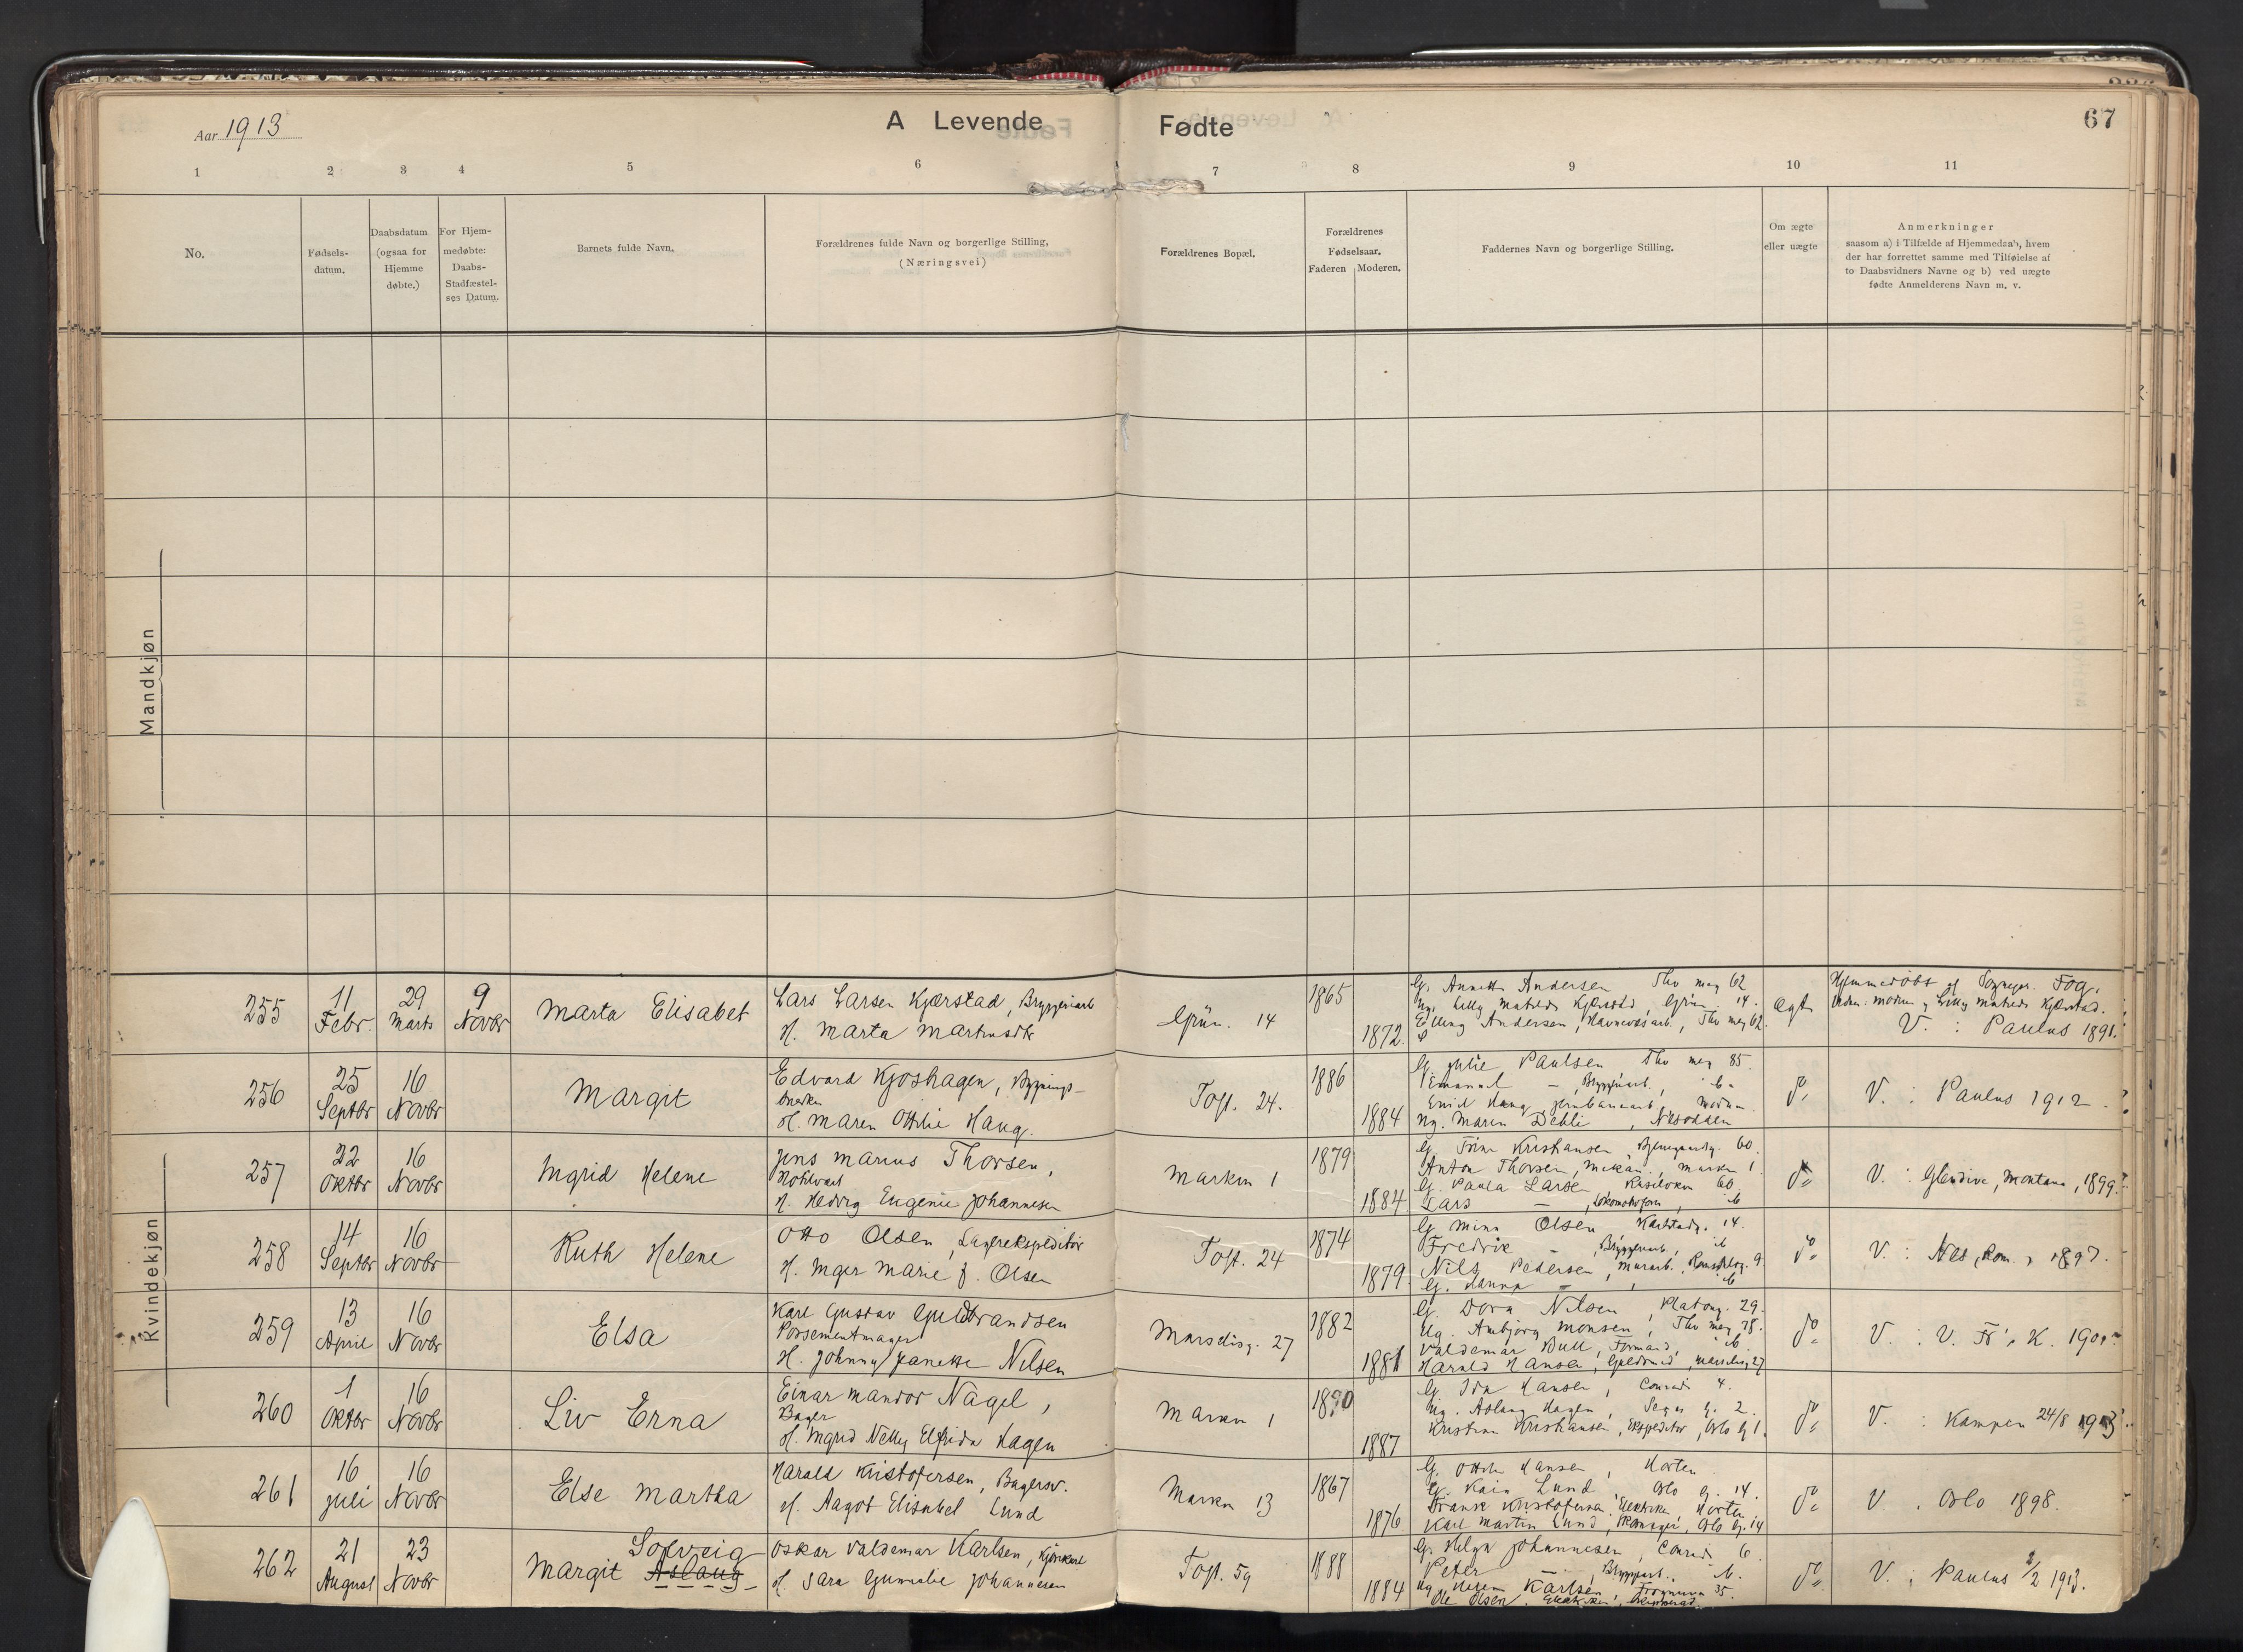 Aar 1913
A Levende Fødte
67
1 2 3 4 5 6 7 8 9 10 11
No.
Fødsels-
datum.
Daabsdatum
(ogsaa for
Hjemme
døbte.)
For Hjem-
medøbte:
Daabs-
Stadfæstel-
ses Datum.
Barnets fulde Navn.
Forældrenes fulde Navn og borgerlige Stilling,
(Næringsvei)
Forældrenes Bopæl.
Forældrenes
Fødselsaar.
Faderen Moderen.
Faddernes Navn og borgerlige Stilling.
Om ægte
eller uægte
Anmerkninger
saasom a) i Tilfælde af Hjemmedaab, hvem
der har forrettet samme med Tilføielse af
to Daabsvidners Navne og b) ved uægte
fødte Anmelderens Navn m. v.
Mandkjøn
Kvindekjøn
255
11
Febr.
29
Marts
9
Novbr
Marta Elisabet
Lars Larsen Kjærstad, Bryggeriarb
H. Marta Martinsdtr
Grün. 14
1865
1872
G. Annette Andersen Thv mey 62
Ug. Lilly Matilde Kjærstad, Grün. 14.
Elling Andersen, Havnevæsarb., Thv mey 62.
Ægte
Hjemmedøbt af Sognepr.
V. : Paulus 1891.
256
25
Septbr
16
Novbr
Margit
Edvard Kjoshagen, Bygnings-
snedker
H. Maren Otilie Haug.
Toft. 24.
1886
1884
G. Julie Paulsen Thv mey 85.
Emanuel — , Bryggeriarb., ib.
Ug. Maren Dehli, Nesodden
do
V. : Paulus 1912.
257
22
Oktbr
16
Novbr
Ingrid Helene
Jens Marius Thorsen,
H. Hedvig Eugenie Johannesen
Marken 1
1879
1884
Anton Thorsen, Mekan., Marken 1.
G. Paula Larsen
Lars — , ib
do
V. : Glendive, Montana, 1899.
258
14
Septbr
16
Novbr
Ruth Helene
Otto Olsen, Lagerekspeditør
H. Inger Marie f. Olsen
Toft. 24
1874
1879
G. Mina Olsen Karlstadg. 14.
Fredrik — , Bryggeriarb., ib
Nils Pedersen, Murarb.
G. Hanna — , ib
do
V. : Nes, Rom., 1897.
259
13
April
16
Novbr
Elsa
Karl Gustav Guldbrandsen
Possementmager
H. Johnny Janette Nilsen
Marsdisg. 27
1882
1881
G. Dora Nilsen, Platoug. 29.
Ug. Ambjørg Monsen, Thv mey 78.
Valdemar Bull, Formand, ib.
Harald Hansen
do
V. : V. Fr. K.
260
1
Oktbr
16
Novbr
Liv Erna
Einar Mandor Nagel,
Bager
H. Ingrid Nelly Elfrida Hagen
Marken 1
1890
1887
G. Ida Hansen, Conradi 4.
Ug. Aslaug Hagen
Kristian Kristiansen, Ekspeditør, Oslo g 1.
do
V. : Kampen 24/8 1913
261
16
Juli
16
Novbr
Else Martha
Harald Kristofersen, Bagersv.
H. Aagot Elisabet Lund
Marken 13
1867
1876
Hansen, Horten
Lund, Oslo g. 14.
Frank Kristofersen, Horten
Karl Martin Lund, Oslo g. 14
do
V. : Oslo 1898.
262
21
August
23
Novbr
Solveig
Margit Aslaug
Oskar Valdemar Karlsen
H. Sara Johannesen
Toft. 59
1888
1884
G. Helga Johannesen, Conradi 6.
Peter — , Bryggeriarb., ib.
Karlsen 35.
Ole Olsen
do
V. : Paulus 2/2 1913.